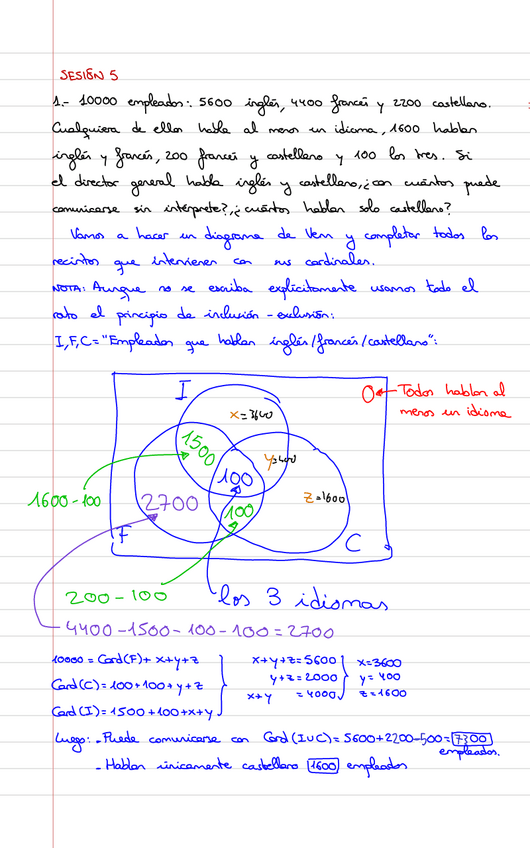 SESIÓN 5
1.- 10000 empleados: 5600 inglés, 4400 francés y 2200 castellano.
Cualquiera de ellos habla al menos un idioma, 1600 hablan
inglés y francés, 200 francés y castellano y 100 los tres. Si
el director general habla inglés y castellano, ¿con cuántos puede
comunicarse sin intérprete?, ¿cuántos hablan solo castellano?
Vamos a hacer un diagrama de Venn y completar todos los
recintos que intervienen con sus cardinales.
NOTA: Aunque no se escriba explícitamente usamos todo el
rato el principio de inclusión-exclusión:
I,F,C="Empleados que hablan inglés/francés/castellano":
I
O ← Todos hablan al
menos un idioma
x=3600
1500
y=400
100
1600-100
2700
z=1600
100
F
C
200-100
los 3 idiomas
4400-1500-100-100=2700
10000 = Card(F)+ x+y+z
x+y+z=5600
x=3600
Card(C)=100+100+y+z
y+z=2000
y=400
x+y =4000
z=1600
Card(I)=1500+100+x+y
Luego: -Puede comunicarse con Card(I∪C)=5600+2200-500=7300
empleados.
- Hablan únicamente castellano 1600 empleados